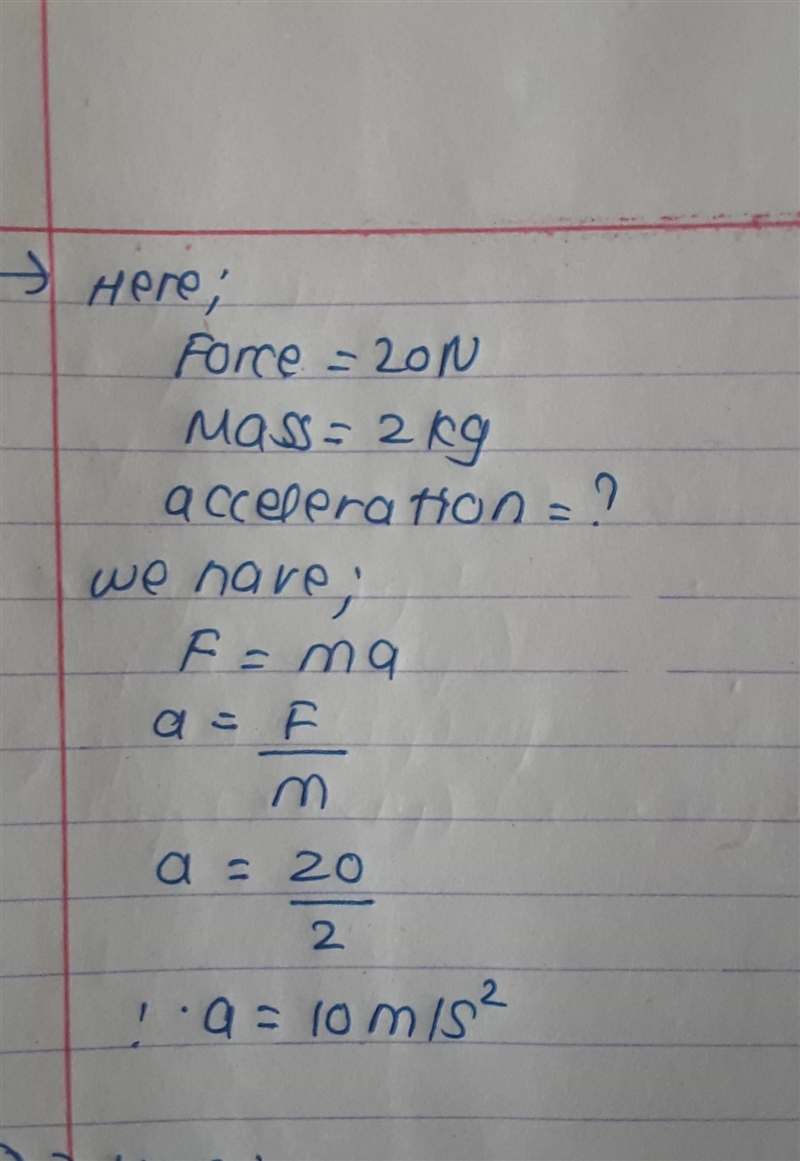 → Here;
Force = 20N
Mass = 2 kg
acceleration = ?
we have;
F = ma
a = F
m
a = 20
2
∴ a = 10 m/s²